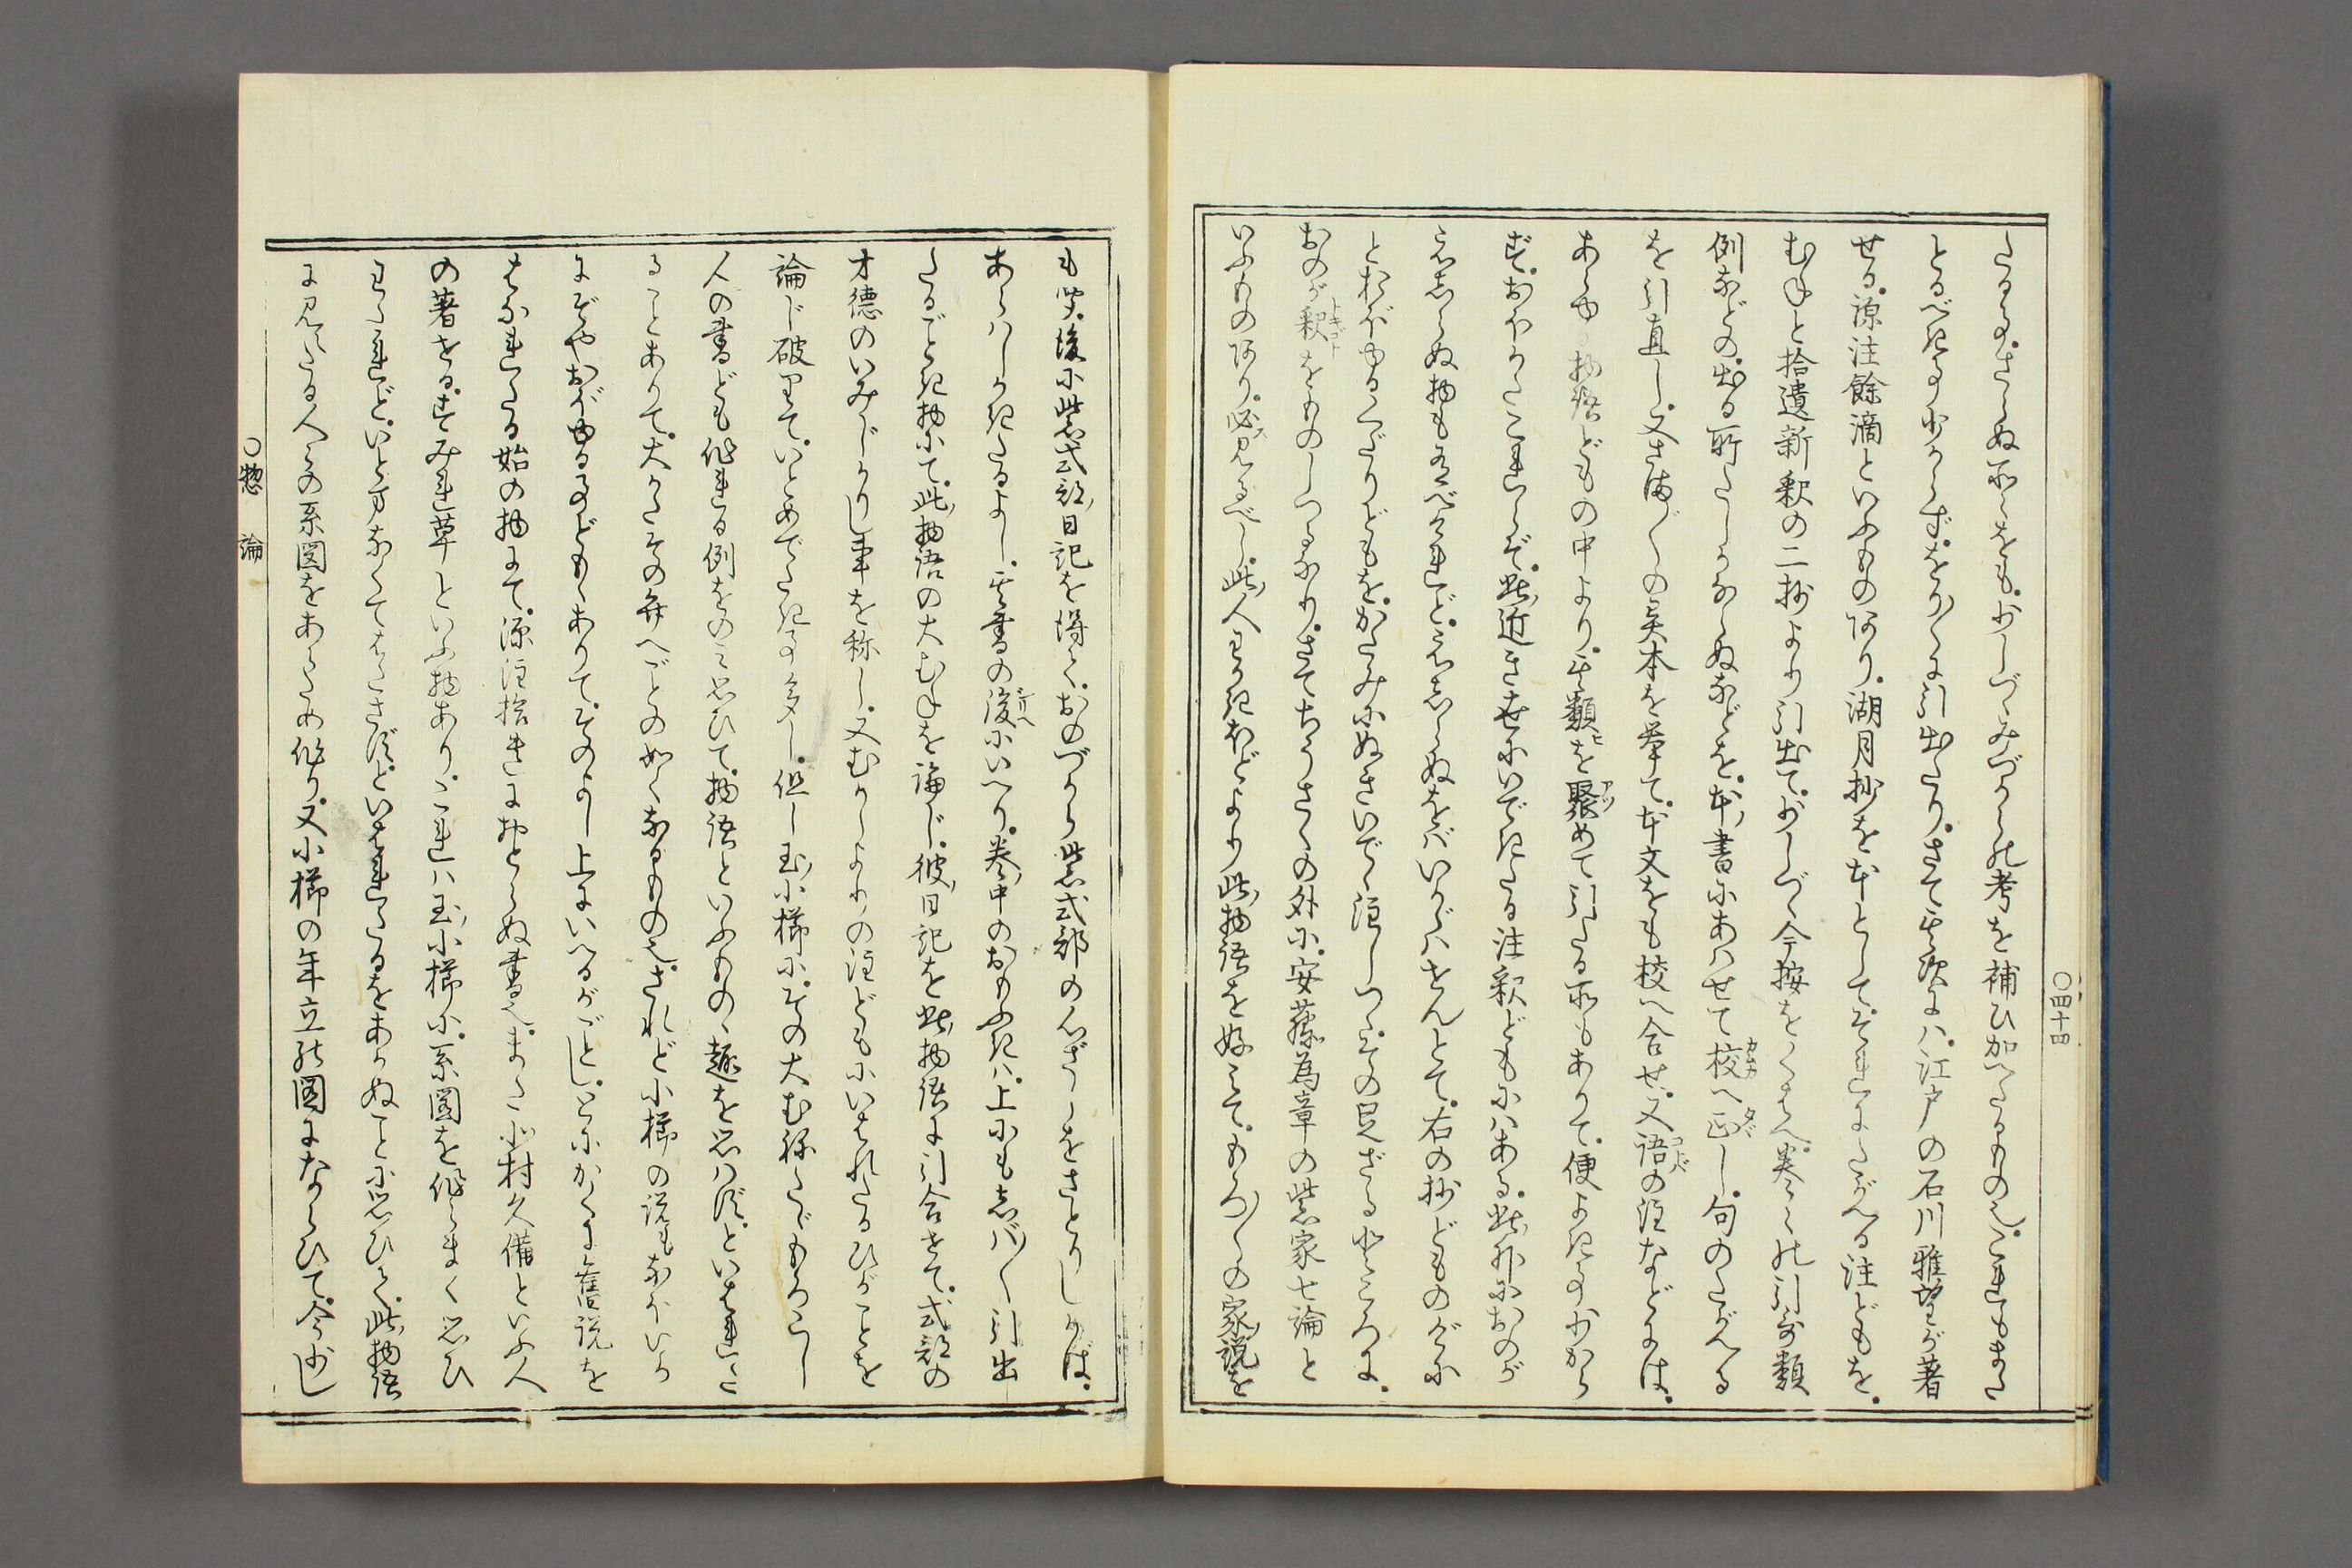 〇四十四
たる事、さらぬ所々をも、少しづゝみづからの考を補ひ加へたるもの也、これもまた
とるべき事少からず、をり〱に引出たり、さて其次には、江戸の石川雅望が著
せる、源注餘滴といふものあり、湖月抄を本として、それにたがへる注どもを、
むねと拾遺新釈の二抄より引出て、少しづゝ今按をくはへ、巻々の引哥類
例などの、出る所たしかならぬなどを、本書にあはせて校へ正し、句のたがへる
を引直し、又さま〲の異本を挙て、本文をも校へ合せ、又語の注などには、
あらゆる物語どもの中より、其類を聚めて引たる所もありて、便よき事少から
ず、おほかたこれらぞ、此近き世にいできたる注釈どもにはある、此外におのが
えしらぬ物も有べけれど、えしらぬをばいかゞはせんとて、右の抄どものがに
とおぼゆるくだりどもを、かたみにぬきいでゝ注しつ、その足ざるところに、
おのが釈をものしつるなり、さてちうさくの外に、安藤為章の紫家七論と
いふものあり、必見るべし、此人わかきほどより此物語を好みて、もろ〱の家説を
も学、後に紫式部日記を得て、おのづから紫式部の心ざしをさとりしかば、
あらはしかきたるよし、其書の後にいへり、巻中のおもふきは、上にもしば〱引出
たるごとき物にて、此物語の大むねを論じ、彼日記を此物語に引合せて、式部の
才徳のいみじかりし事を称し、又むかしよりの注どもにいはれたるひがことを
論じ破りて、いとめでたき事多し、但し玉小櫛に、その大むねたゞもろこし
人の書ども作れる例をのみ思ひて、物語といふものゝ趣を思はず、といはれた
ることありて、大かたその弁へごとの如くなるもの也、されど小櫛の説もなほいか
にぞやおぼゆる事どもゝありて、そのよし上にいへるがごとし、とにかくに舊説を
はなれたる始の物にて、源注拾遺におとらぬ書也、また北村久備といふ人
の著せる、すみれ草といふ物あり、これは玉小櫛に、系図を作らまく思ひ
わたれど、いとまなくてはたさず、といはれたるをあかぬことに思ひて、此物語
に見えたる人々の系図をあらため作り、又小櫛の年立の図にならひて、今少し
〇惣論